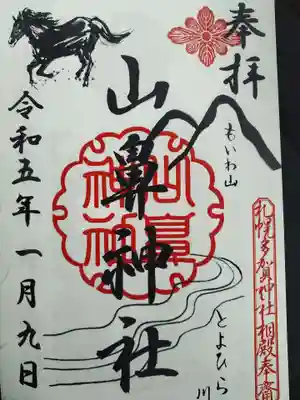 奉拝
もいわ山
札幌多賀神社相殿奉斎
山鼻神社
とよひら川
令和五年一月九日